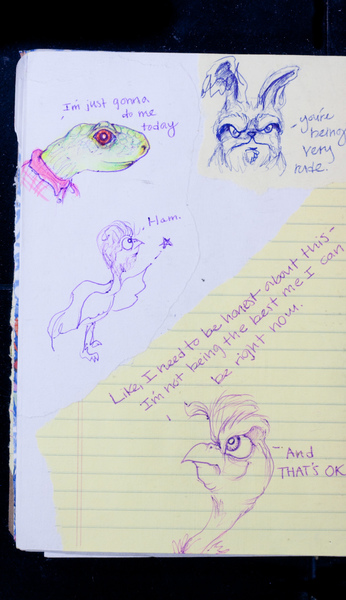 I'm just gonna
do me
today
you're
being
very
rude.
Ham.
Like, I need to be honest about this-
I'm not being the best me I can
be right now.
And
THAT'S OK